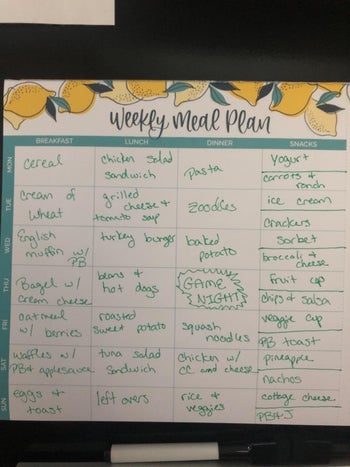 Weekly Meal Plan
BREAKFAST LUNCH DINNER SNACKS
MON
cereal
chicken salad
sandwich
pasta
yogurt
carrots &
ranch
TUE
cream of
wheat
grilled
cheese &
tomato soup
zoodles
ice cream
crackers
WED
English
muffin w/
PB
turkey burger
baked
potato
sorbet
broccoli &
cheese
THU
Bagel w/
cream cheese
beans &
hot dogs
GAME
NIGHT
fruit cup
chips & salsa
FRI
oatmeal
w/ berries
roasted
sweet potato
squash
noodles
veggie cup
PB toast
SAT
waffles w/
PB & applesauce
tuna salad
sandwich
chicken w/
CC and cheese
pineapple
nachos
SUN
eggs &
toast
left overs
rice &
veggies
cottage cheese
PB&J